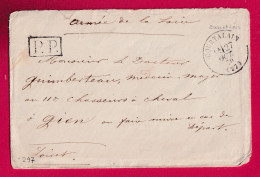 armée de la Loire
P.P.
Monsieur le Docteur
Quimberteau, médecin-major
au 11e Chasseurs à cheval
à Gien ou faire suivre en cas de
départ.
Loiret